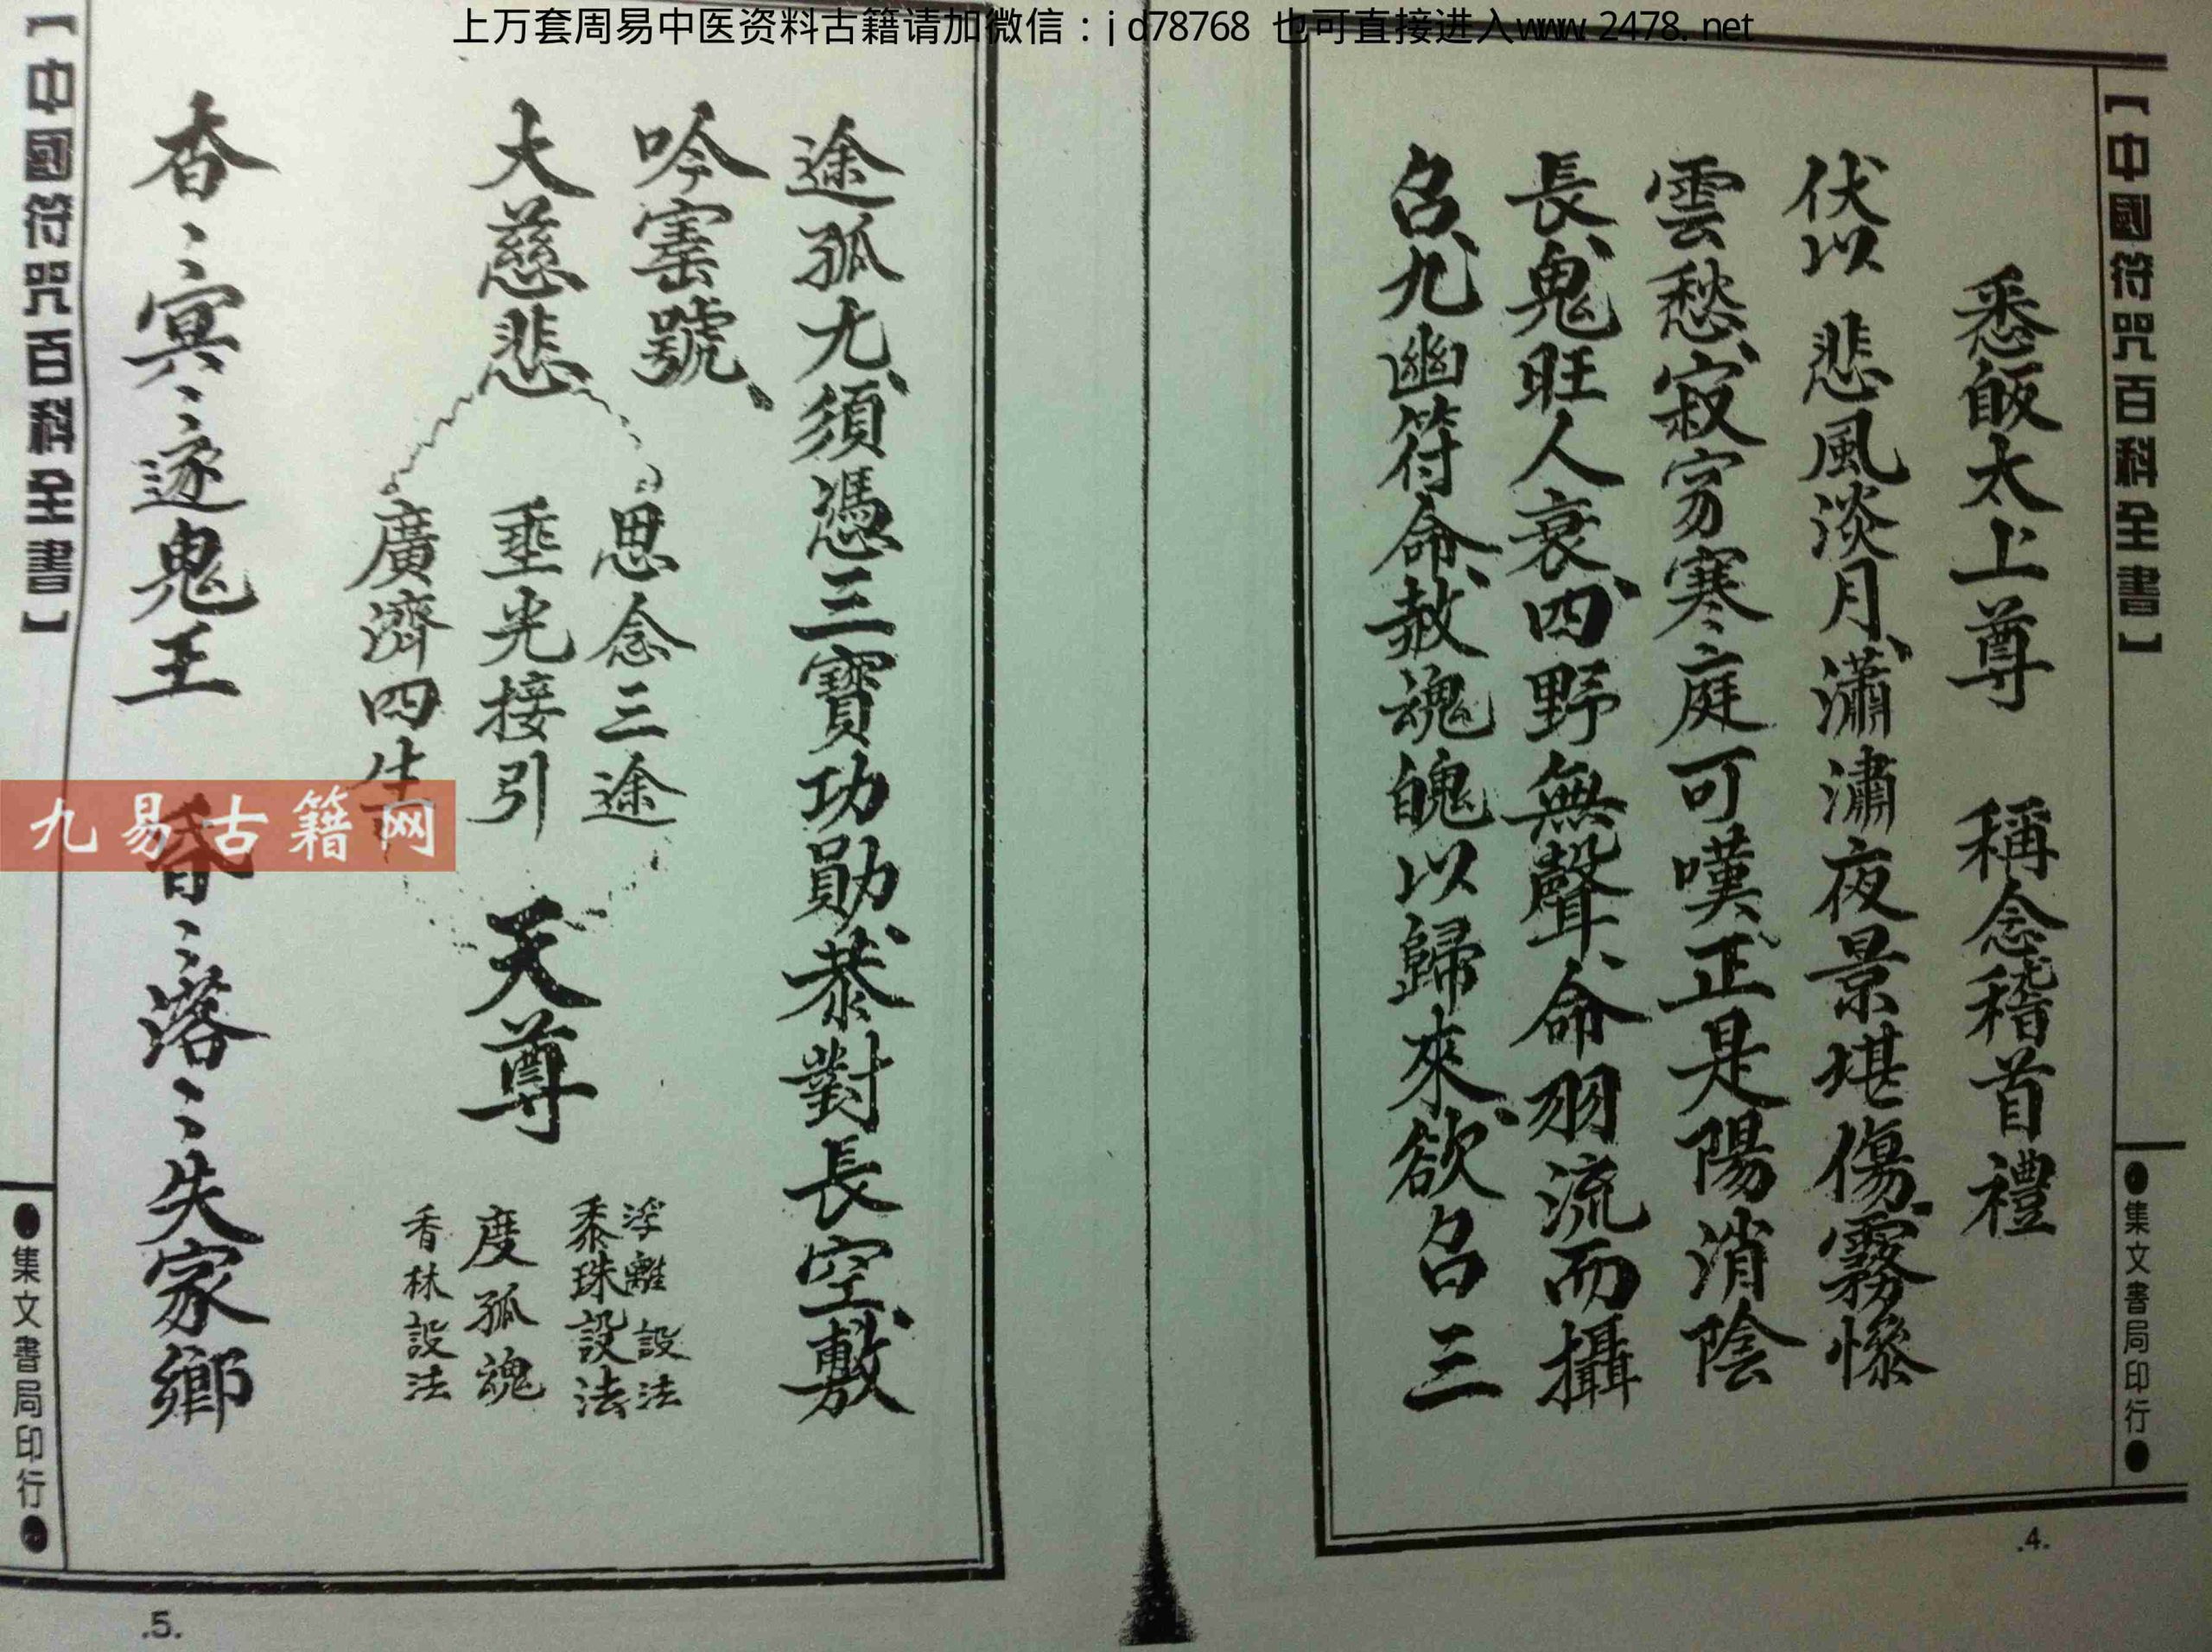 上万套周易中医资料古籍请加微信：jd78768 也可直接进入www.2478.net
【中國符咒百科全書】
●集文書局印行●
悉皈太上尊 稱念稽首禮
伏以 悲風淡月、瀟瀟夜景堪傷、霧慘
雲愁、寂寥寒庭可嘆、正是陽消陰
長、鬼旺人衰、四野無聲、命羽流而攝
召、九幽符命、赦魂魄以歸來、欲召三
.4.
途孤尤、須憑三寶功勛、恭對長空、敷
吟寶號、
大慈悲
思念三途
垂光接引
廣濟四生
天尊
浮離設法
黍珠設法
度孤魂
香林設法
杳〻冥〻逐鬼王 昏〻落〻失家鄉
九易古籍网
【中國符咒百科全書】
●集文書局印行●
.5.